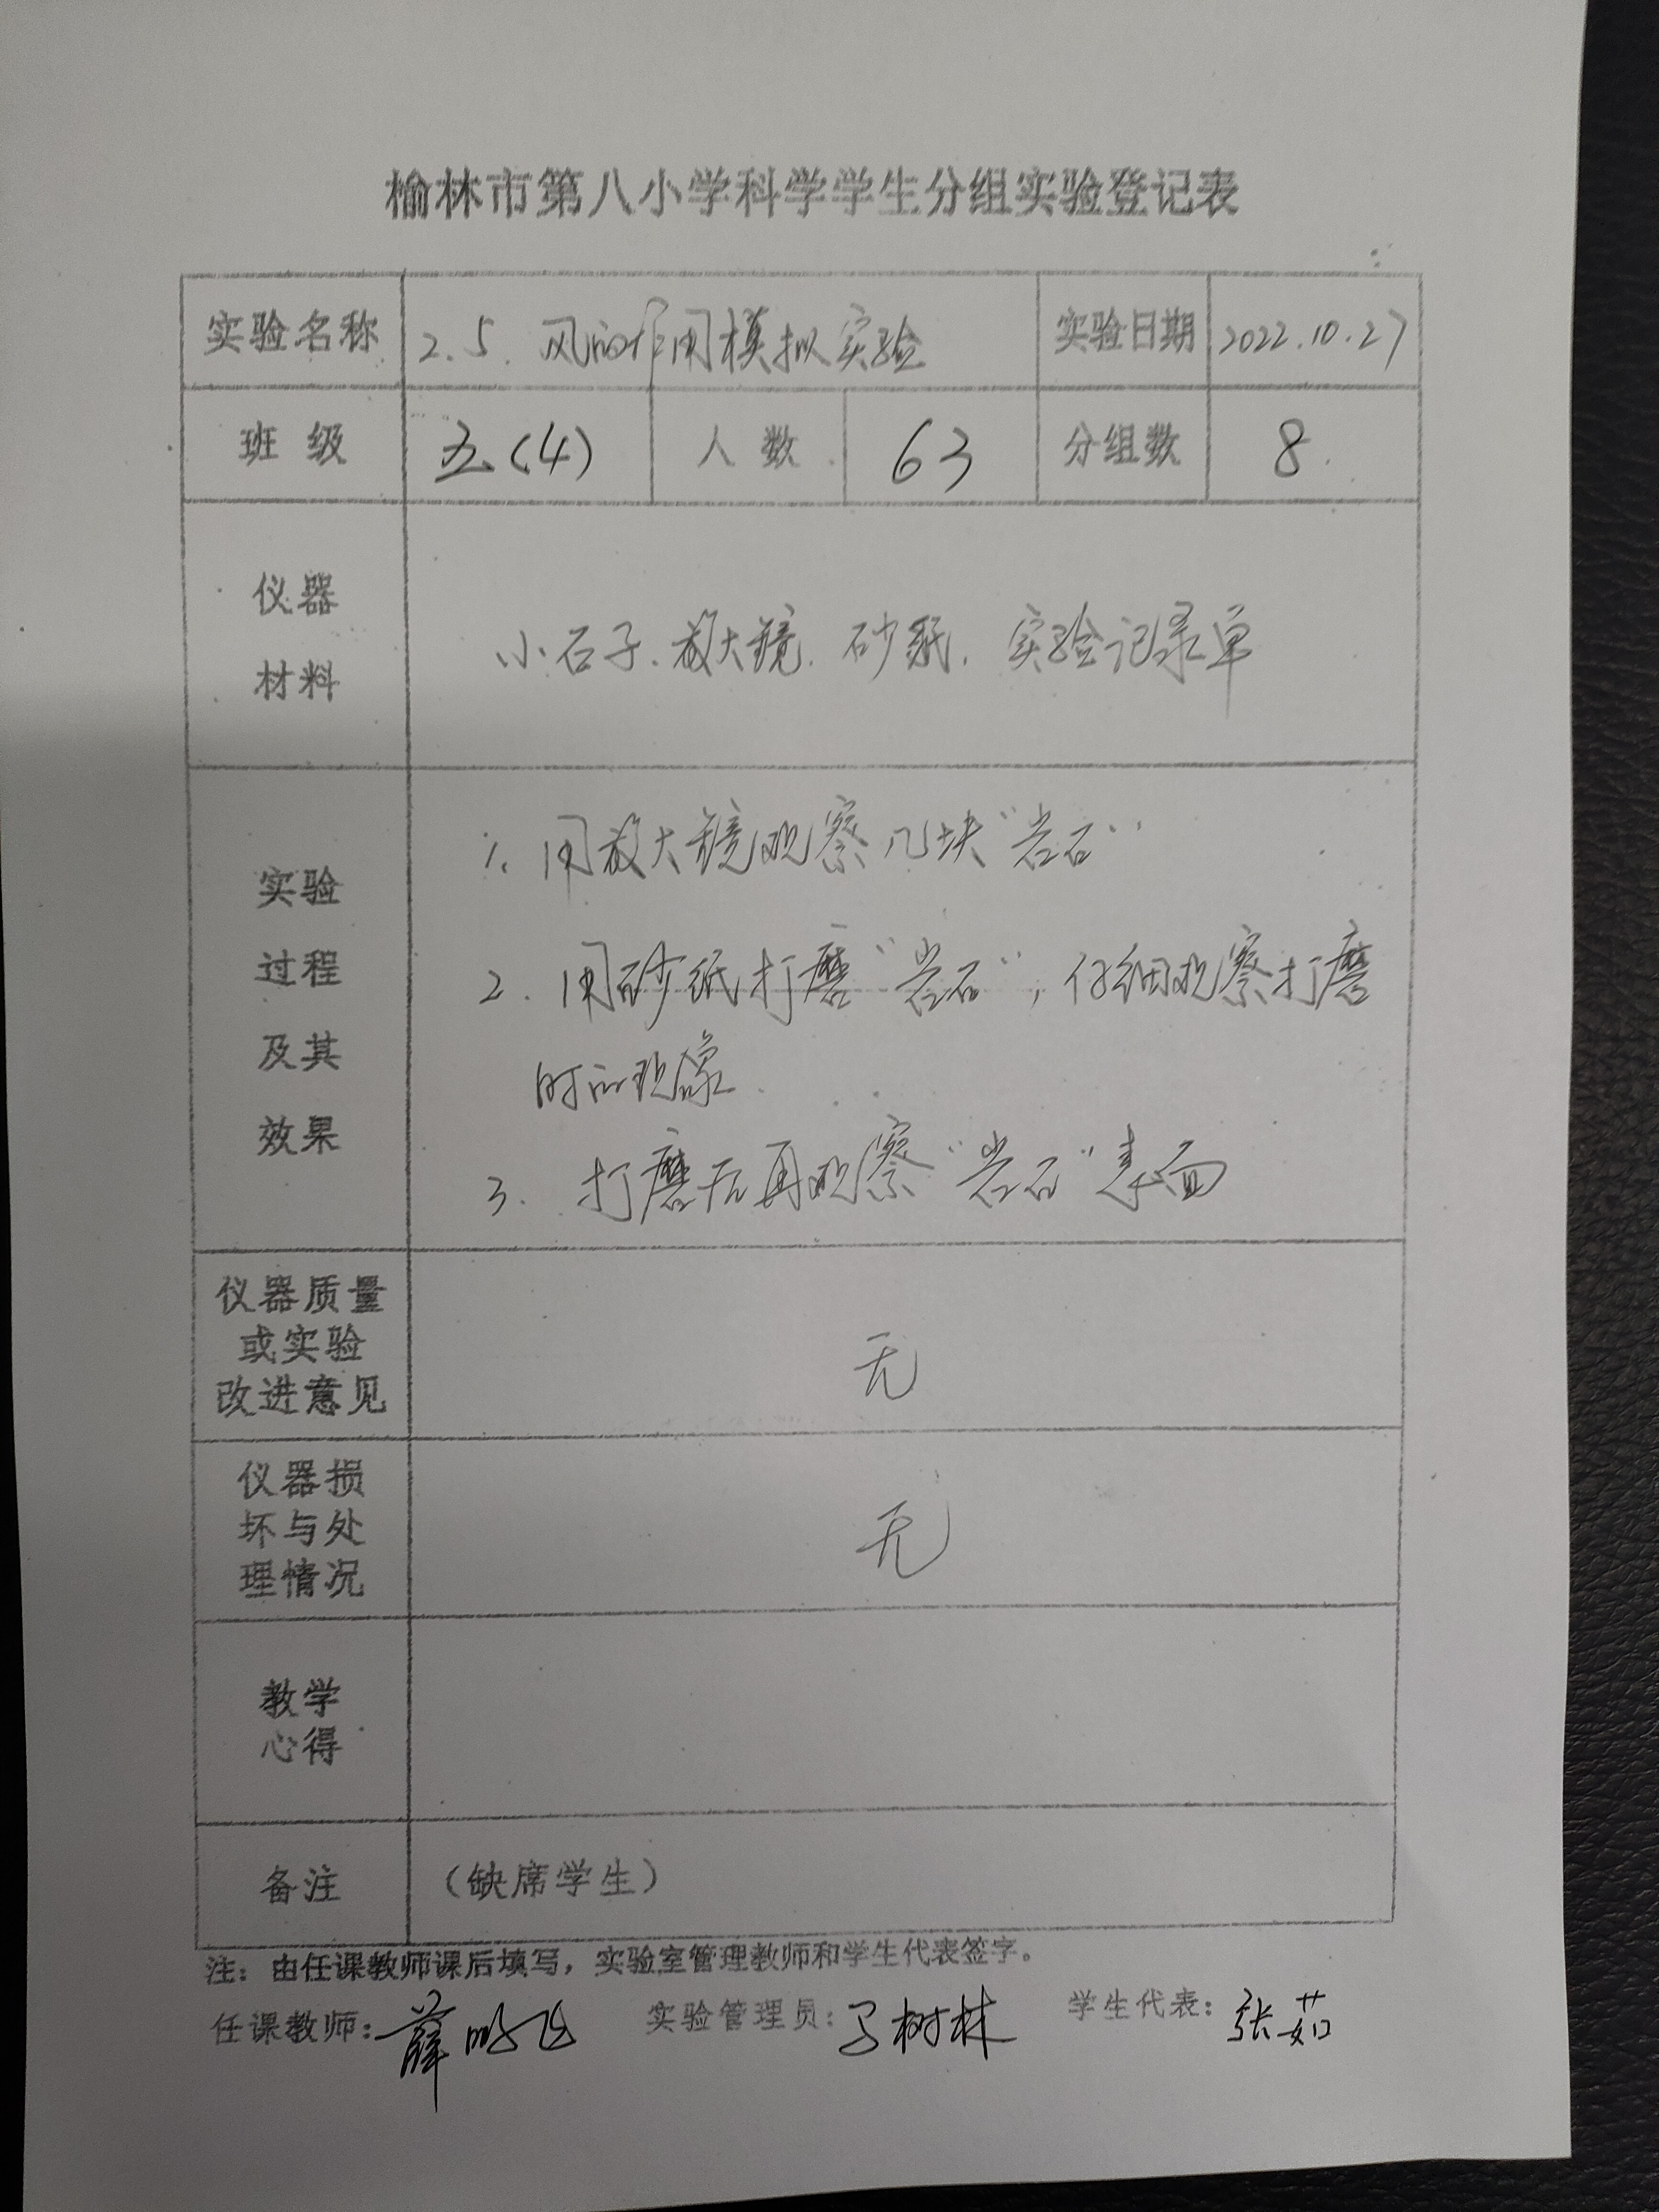 榆林市第八小学科学学生分组实验登记表
实验名称 2.5. 风的作用模拟实验 实验日期 2022.10.27
班级 五(4) 人数 63 分组数 8.
仪器
材料
小石子、放大镜、砂纸、实验记录单
实验
过程
及其
效果
1. 用放大镜观察几块“岩石”
2. 用砂纸打磨“岩石”，仔细观察打磨
时的现象.
3. 打磨后再观察“岩石”表面
仪器质量
或实验
改进意见
无
仪器损
坏与处
理情况
无
教学
心得
备注 （缺席学生）
注：由任课教师课后填写，实验室管理教师和学生代表签字。
任课教师：薛 实验管理员：马树林 学生代表：张茹